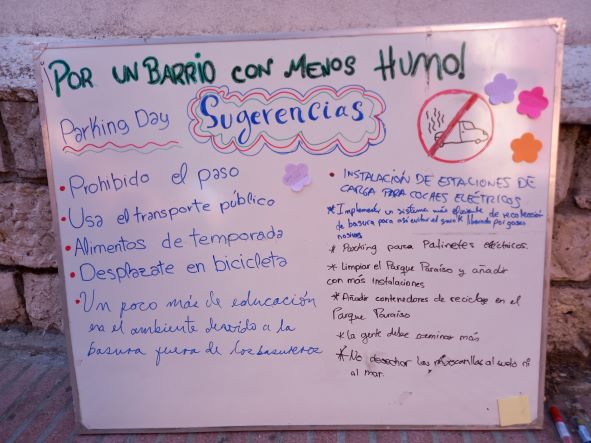 ¡POR UN BARRIO CON MENOS HUMO!
Parking Day
Sugerencias
• Prohibido el paso
• Usa el transporte público
• Alimentos de temporada
• Desplazate en bicicleta
• Un poco más de educación
en el ambiente devido a la
basura fuera de los basureros
• INSTALACIÓN DE ESTACIONES DE
CARGA PARA COCHES ELÉCTRICOS
* Implementar un sistema más eficiente de recolección
de basura para así evitar el liberado por gases
nosivos
* Parking para Patinetes eléctricos.
* Limpiar el Parque Paraíso y añadir
con más instalaciones
* Añadir contenedores de reciclaje en el
Parque Paraíso
* La gente debe caminar más
* No desechar las mascarillas al suelo ni
al mar.